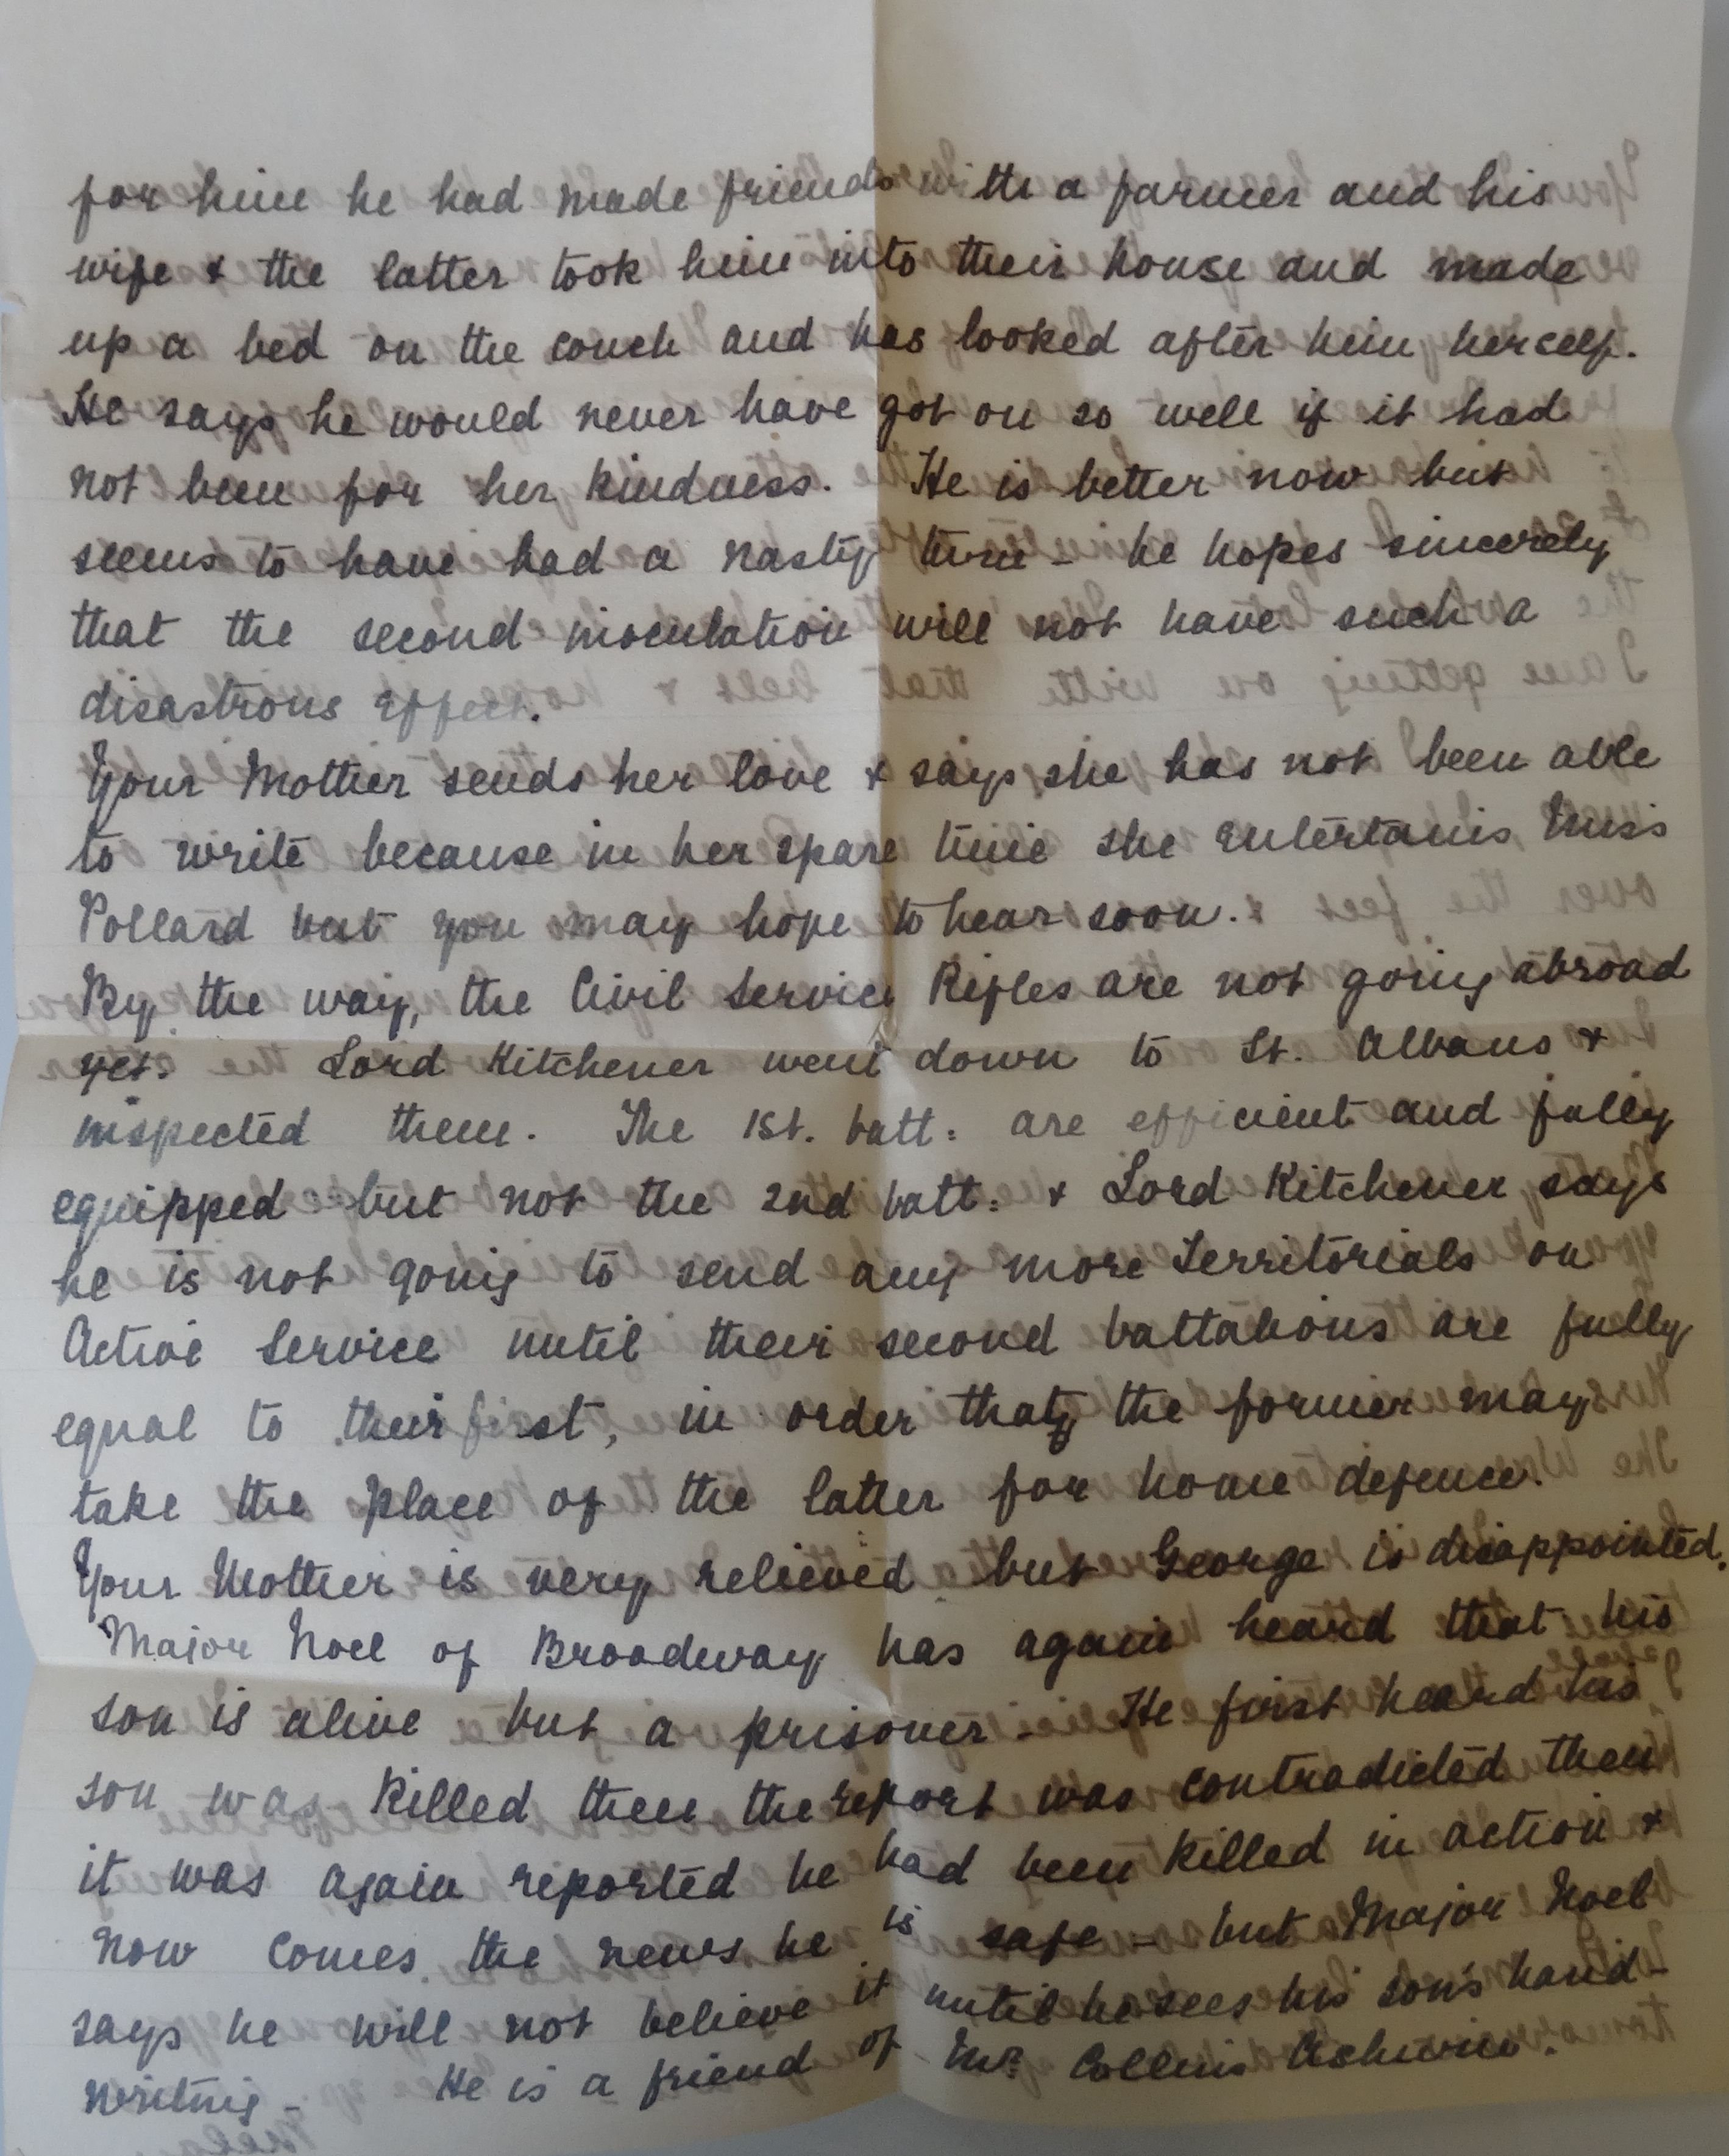 for him he had made friends with a farmer and his
wife & the latter took him into their house and made
up a bed on the couch and has looked after him herself.
He says he would never have got on so well if it had
not been for her kindness. He is better now but
seems to have had a nasty time - he hopes sincerely
that the second inoculation will not have such a
disastrous effect.
Your Mother sends her love & says she has not been able
to write because in her spare time she entertains Miss
Pollard but you may hope to hear soon.
By the way, the Civil Service Rifles are not going abroad
yet. Lord Kitchener went down to St. Albans &
inspected them. The 1st. batt: are efficient and fully
equipped but not the 2nd batt: & Lord Kitchener says
he is not going to send any more Territorials on
Active Service until their second battalions are fully
equal to their first, in order that the former may
take the place of the latter for home defence.
Your Mother is very relieved but George is disappointed.
Major Noel of Broadway has again heard that his
son is alive but a prisoner - He first heard his
son was killed then the report was contradicted then
it was again reported he had been killed in action &
now comes the news he is safe - but Major Noel
says he will not believe it until he sees his son's hand-
writing - He is a friend of Mr. Collins Ashwin.